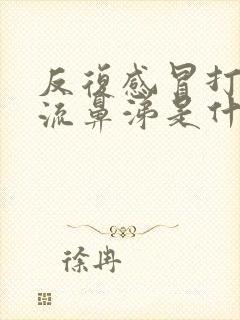 反復感冒打
流鼻涕是什
徐冉